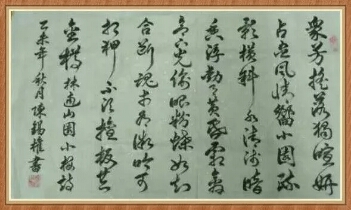 衆芳摇落獨暄妍
占盡風情向小園疏
影横斜水清淺暗
香浮動月黄昏霜禽
欲下先偷眼粉蝶如知
合斷魂幸有微吟可
相狎不須檀板共
金樽 林逋山園小梅詩
乙未年秋月陳錫書